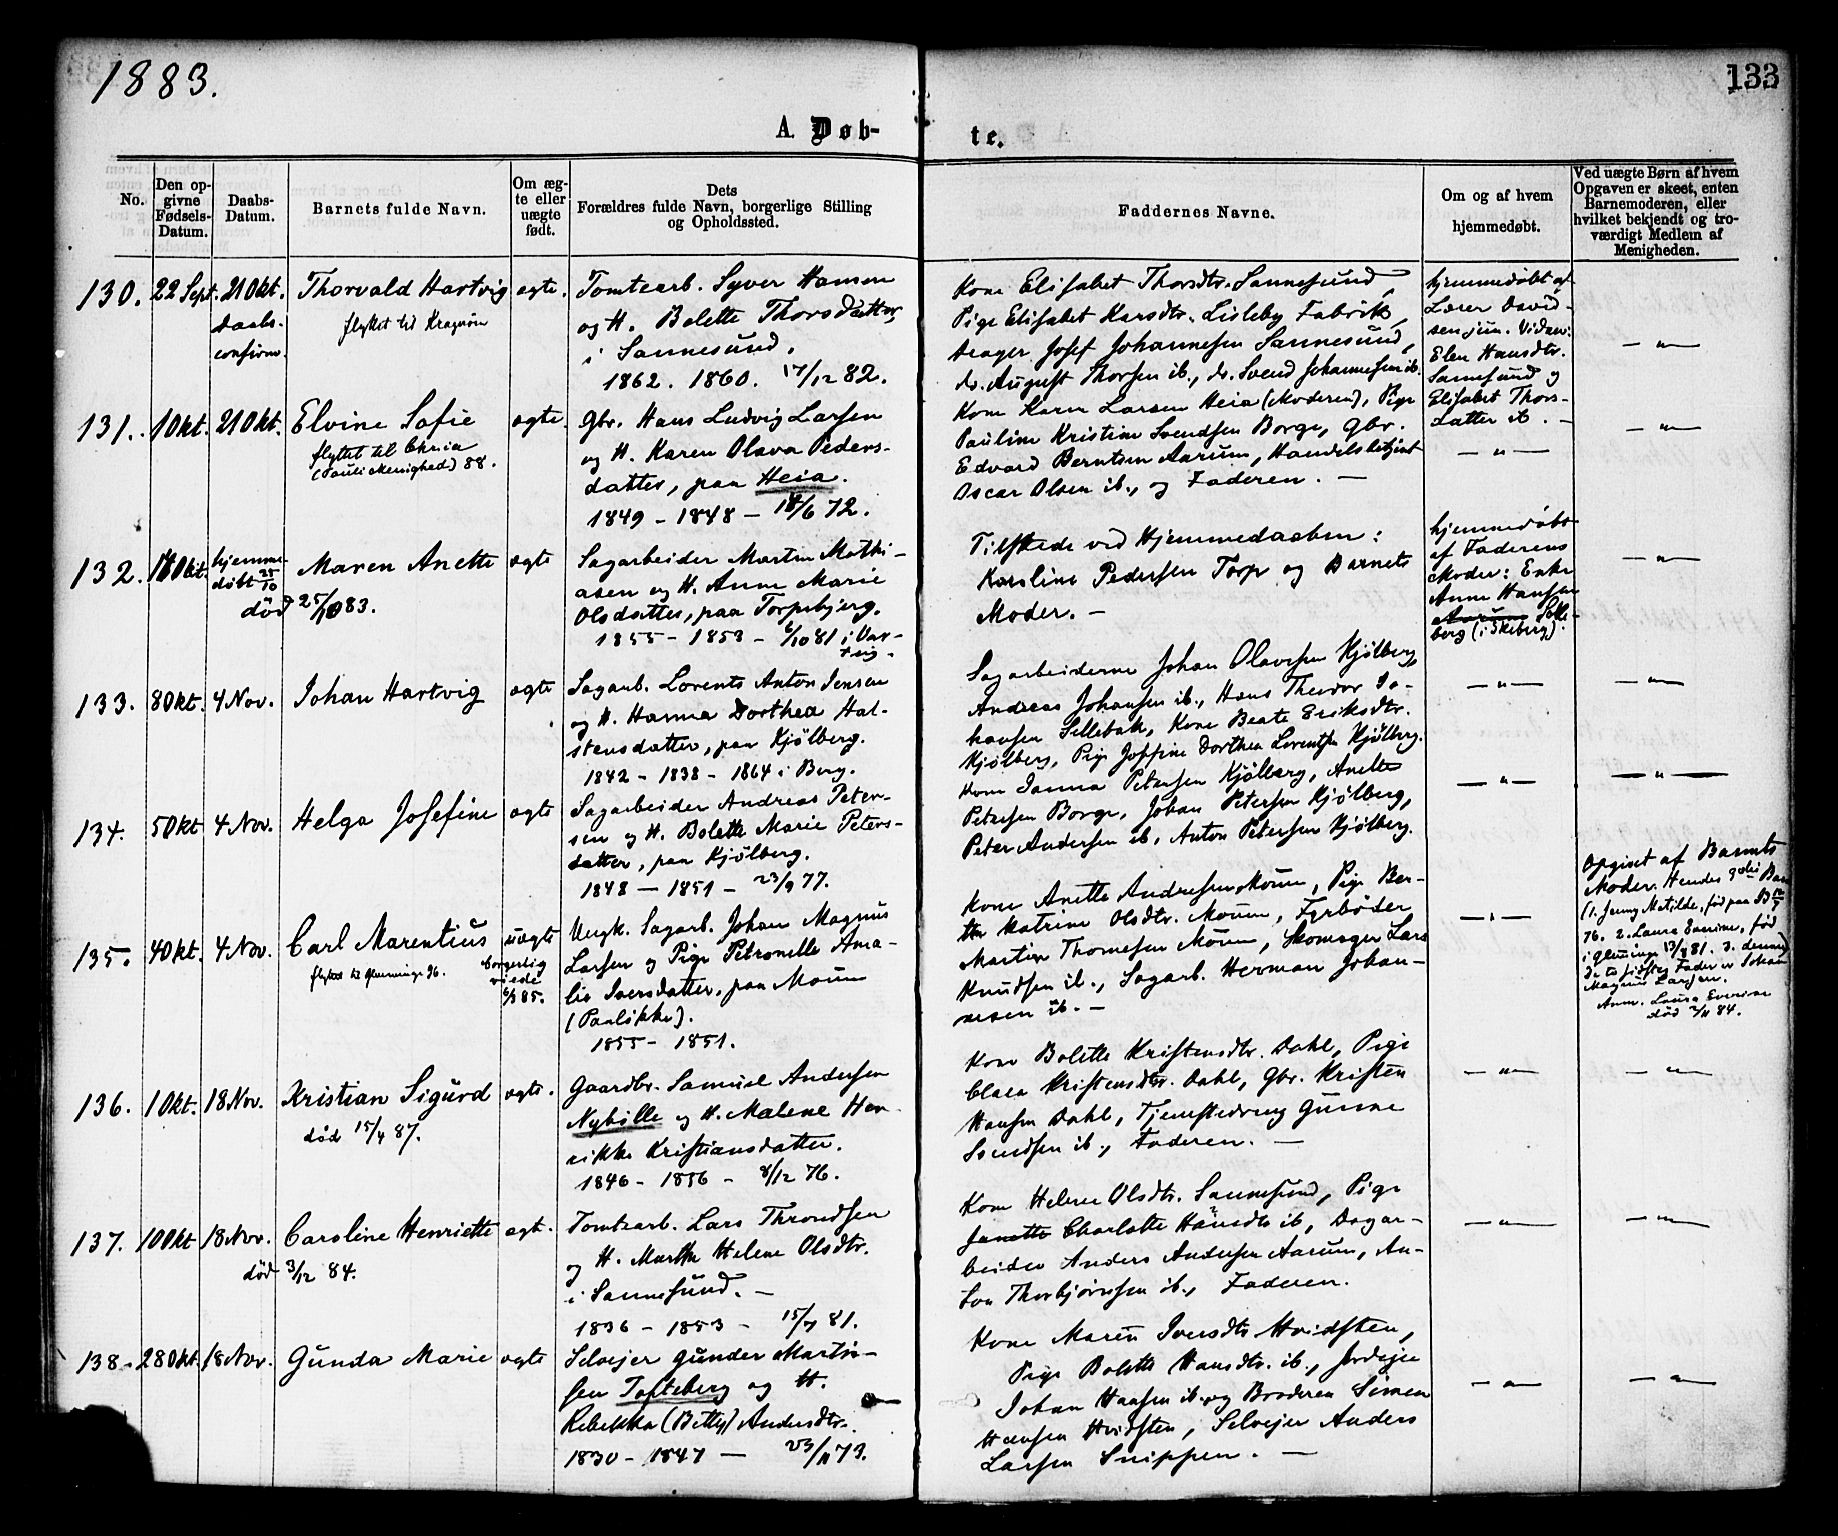 1883.
133
A. Døb-
te.
No.
Den op-
givne
Fødsels-
Datum.
Daabs-
Datum.
Barnets fulde Navn.
Om æg-
te eller
uægte
født.
Dets
Forældres fulde Navn, borgerlige Stilling
og Opholdssted.
Faddernes Navne.
Om og af hvem
hjemmedøbt.
Ved uægte Børn af hvem
Opgaven er skeet, enten
Barnemoderen, eller
hvilket bekjendt og tro-
værdigt Medlem af
Menigheden.
130. 22 Sept. 21 Okt. Thorvald Hartvig ægte.
daabs-
confirm.
flyttet til Kragerø
Tomtearb. Syver Hansen
og H. Bolette Thorsdatter,
i Sannesund.
1862. 1860. 17/12 82.
Kone Elisabet Thorsdtr. Sannesund,
Pige Elisabet Larsdtr. Lisleby Fabrik,
Drager Josef Johannesen Sannesund,
dr. August Thorsen ib., dr. Svend Johannesen ib.
hjemmedøbt af
Lærer David-
sen jun. Vidner:
Elen Hansdtr.
Sannesund og
Elisabet Thors-
datter ib. -
— " —
131. 1 Okt. 21 Okt. Elvine Sofie ægte.
flyttet til Chria
(Pauli Menighed) 88.
Gbr. Hans Ludvig Larsen
og H. Karen Olava Peders-
datter, paa Heia.
1849 - 1848 - 18/6 72.
Kone Karen Larsen Heia (Moderen), Pige
Pauline Kristine Svendsen Borge, Gbr.
Edvard Berntsen Aarum, Handelsbetjent
Oscar Olsen ib., og Faderen. —
— " —
— " —
132. 16 Okt. hjemme-
døbt 25/10
Maren Anette ægte
død 25/10 83.
Sagarbeider Martin Mathi-
asen og H. Anne Marie
Olsdatter, paa Torpebjerg.
1855 - 1853 - 6/10 81 i Var-
teig.
Tilstede ved Hjemmedaaben:
Karoline Pedersen Torp og Barnets
Moder. —
hjemmedøbt
af Faderens
Moder: Enke
Anne Hansen
Aarum Solle-
berg (i Skeberg).
— " —
133. 8 Okt. 4 Nov. Johan Hartvig ægte
Sagarb. Lorents Anton Jensen
og H. Hanna Dorthea Hal-
stensdatter, paa Kjølberg.
1842 - 1838 - 1864 i Berg.
Sagarbeiderne Johan Olavesen Kjølberg,
Andreas Johansen ib., Hans Theodor Jo-
hansen Sellebak, Kone Beate Eriksdtr.
Kjølberg, Pige Josefine Dorthea Lorentsen Kjølberg.
— " —
— " —
134. 5 Okt 4 Nov. Helga Josefine ægte
Sagarbeider Andreas Peter-
sen og H. Bolette Marie Peters-
datter, paa Kjølberg.
1848 — 1851 - 23/9 77.
Kone Janna Petersen Kjølberg, Anette
Petersen Borge, Johan Petersen Kjølberg,
Peter Andersen ib., Anton Petersen Kjølberg.
— " —
— " —
135. 4 Okt. 4 Nov. Carl Marentius uægte
flyttet til Glemminge 96.
borgerlig
viede
6/3 85.
Ungk. Sagarb. Johan Magnus
Larsen og Pige Petronelle Ama-
lie Iversdatter, paa Moum
(Paaløkke).
1855 - 1851.
Kone Anette Andresen Moum, Pige Ber-
the Katrine Olsdtr. Moum, Fyrbøder
Martin Thomesen Moum, Skomager Lars
Knudsen ib., Sagarb. Herman Johan-
nesen ib. —
— " —
Opgivet af Barnets
Moder. Hendes 3die Barn
(1. Jenny Matilde, fød paa
76. 2. Laura Everine, fød
i Glemminge 13/8 81. 3. denne)
De to sidstes Fader er Johan
Magnus Larsen.
Anm. Laura Everine
død 2/11 84.
136. 1 Okt. 18 Nov. Kristian Sigurd ægte.
død 15/4 87.
Gaardbr. Samuel Andersen
Nybølle og H. Malene Hen-
rikke Kristiansdatter.
1846 - 1856 - 8/12 76.
Kone Bolette Kristensdtr. Dahl, Pige
Claea Kristensdtr. Dahl, Gbr. Kristen
Hansen Dahl, Tjenestedreng Gunne
Svendsen ib., Faderen. —
— " —
— " —
137. 10 Okt 18 Nov. Caroline Henriette ægt.
død 3/12 84.
Tomtearb. Lars Throndsen
og H. Marthe Helene Olsdtr.
i Sannesund. —
1836 - 1853 - 15/7 81.
Kone Helene Olsdtr. Sannesund, Pige
Janette Charlotte Hansdtr ib., Dagar-
beider Anders Andersen Aarum, An-
ton Thorbjørnsen ib., Faderen.
— " —
— " —
138. 28 Okt. 18 Nov. Gunda Marie ægte
Selveier Gunder Martin-
sen Tofteberg og H.
Rebekka (Betty) Andersdtr.
1830 - 1847 — 23/11 73.
Kone Maren Iversdtr Hvidsten,
Pige Bolette Hansdtr. ib., Jordeier
Johan Hansen ib. og Broderen Simen
Hansen Hvidsten, Selveier Anders
Larsen Snippen. —
— " —
— " —